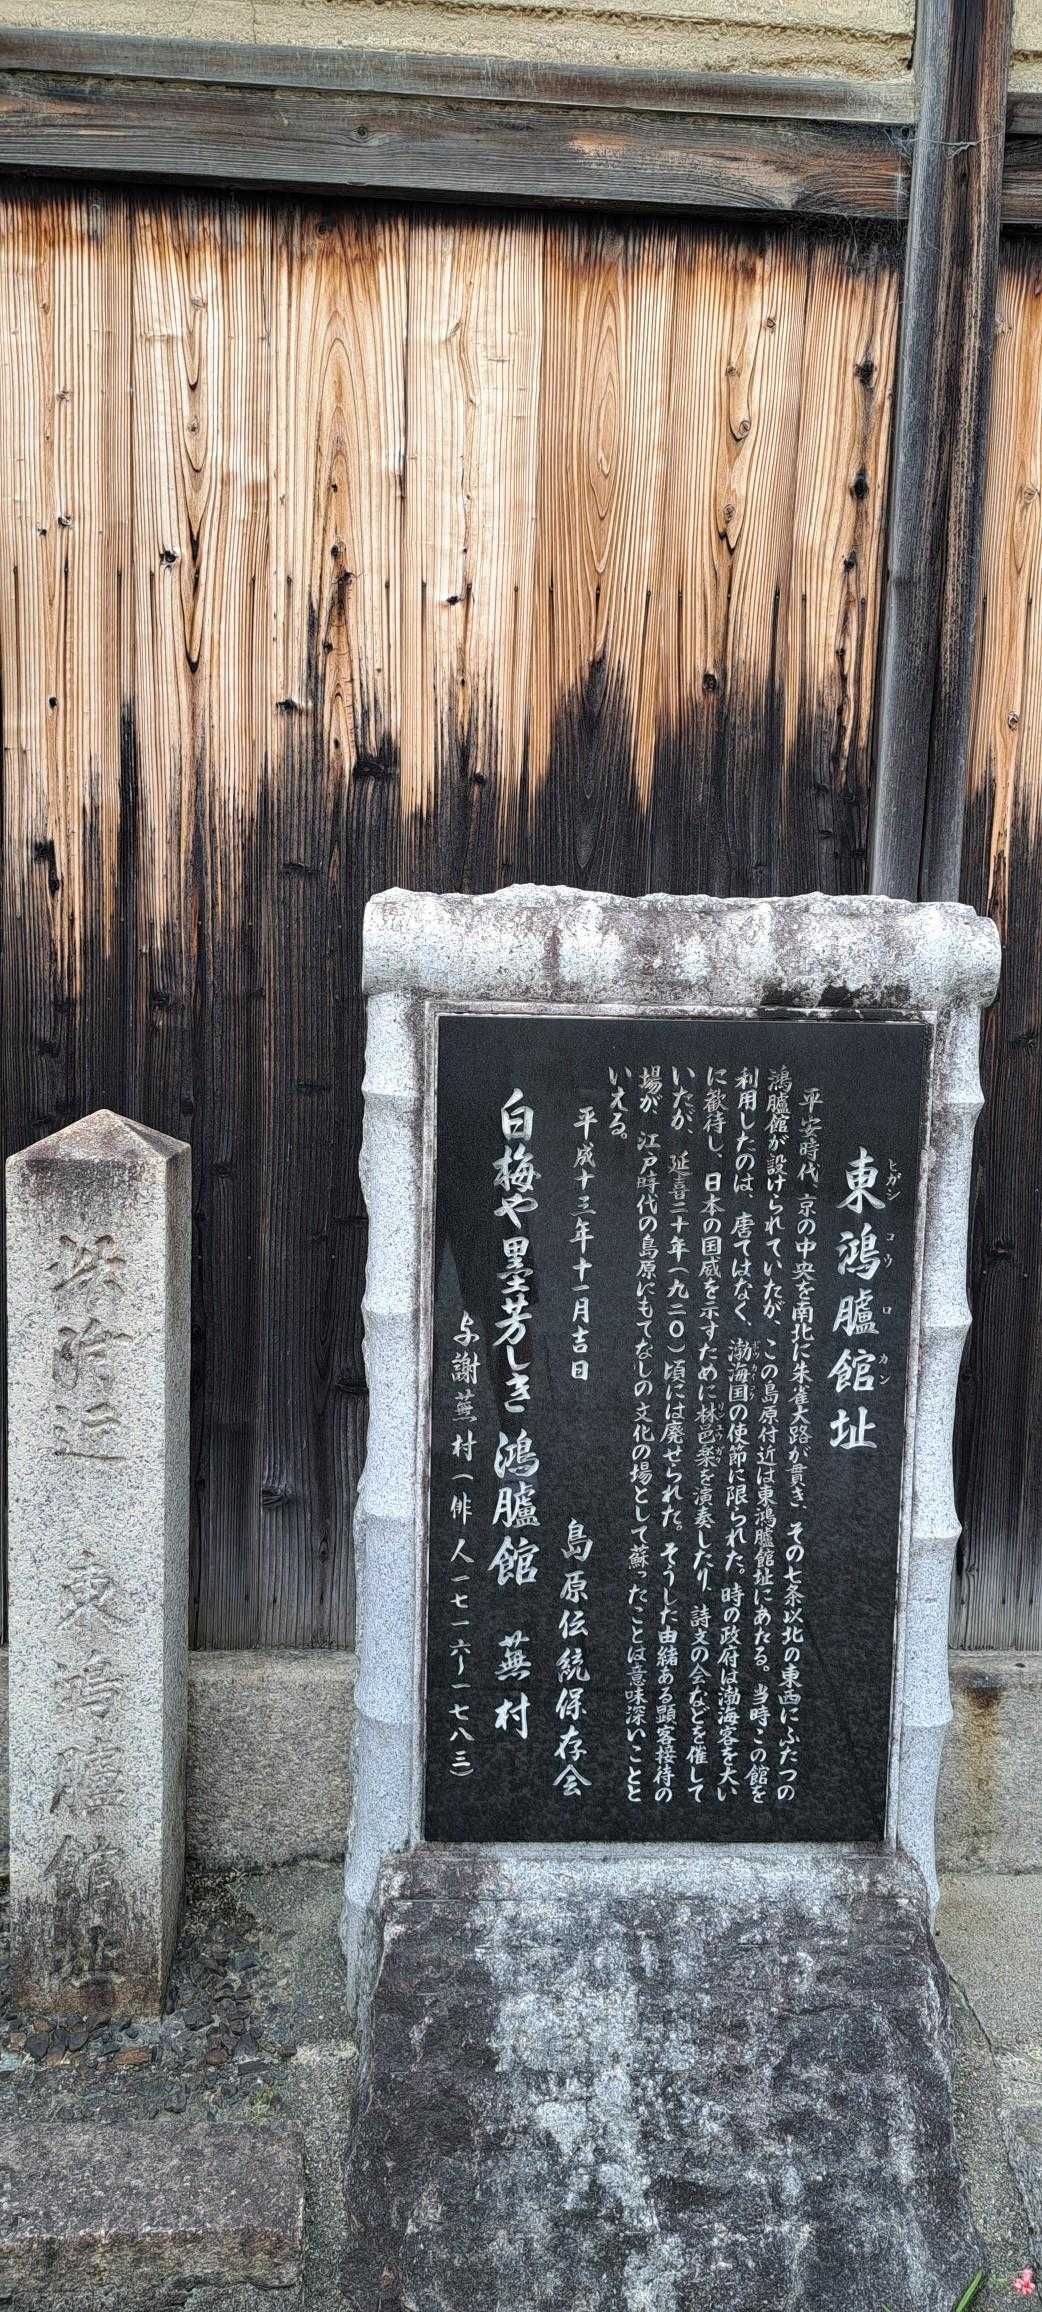 東鴻臚館址
ヒガシ コウ ロ カン
平安時代、京の中央を南北に朱雀大路が貫き、その七条以北の東西にふたつの
鴻臚館が設けられていたが、この島原付近は東鴻臚館址にあたる。当時この館を
利用したのは、唐ではなく、渤海国の使節に限られた。時の政府は渤海客を大い
に歓待し、日本の国威を示すために林邑楽を演奏したり、詩文の会などを催して
いたが、延喜二十年(九二〇)頃には廃せられた。そうした由緒ある顕客接待の
場が、江戸時代の島原にもてなしの文化の場として蘇ったことは意味深いことと
いえる。
平成十三年十一月吉日 島原伝統保存会
白梅や墨芳しき鴻臚館 蕪村
与謝蕪村(俳人一七一六〜一七八三)
東鴻臚館址